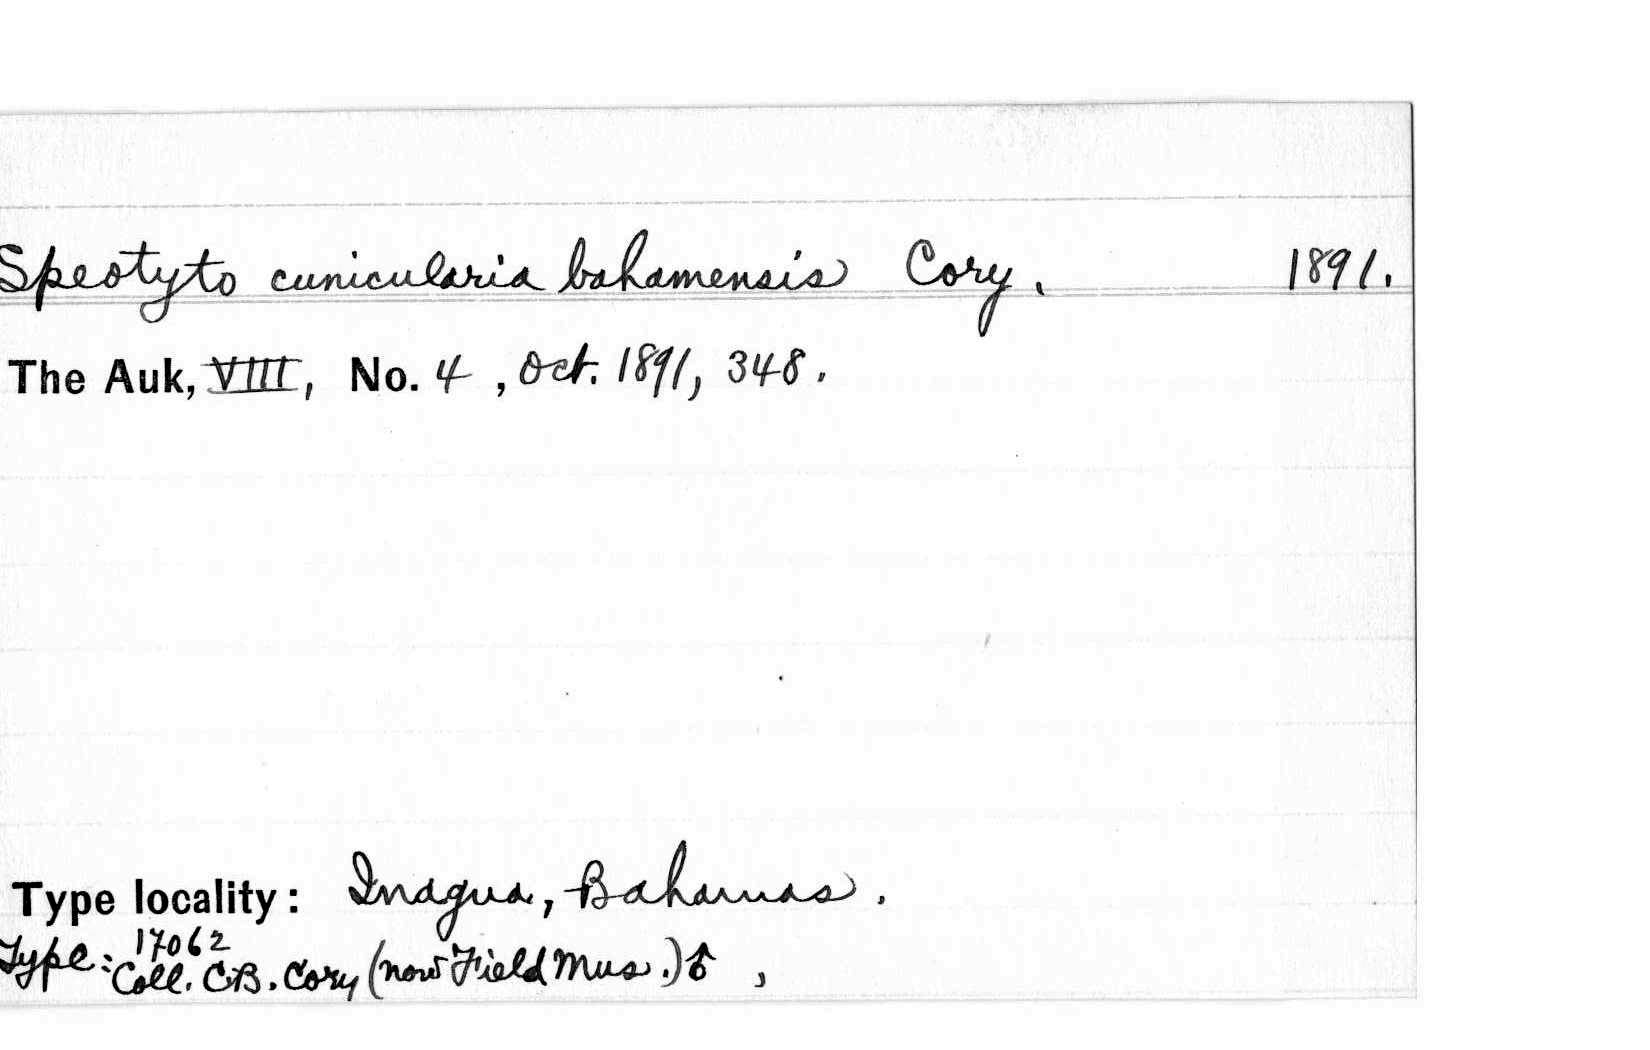 Speotyto cunicularia bahamensis Cory. 1891.
The Auk, VIII, No. 4, Oct. 1891, 348.
Type locality: Inagua, Bahamas.
17062
Type: Coll. C.B. Cory (now Field Mus.) ♂,